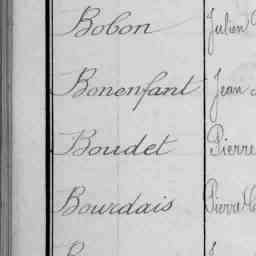 Bobon Julien
Bonenfant Jean
Boudet Pierre
Bourdais Pierre